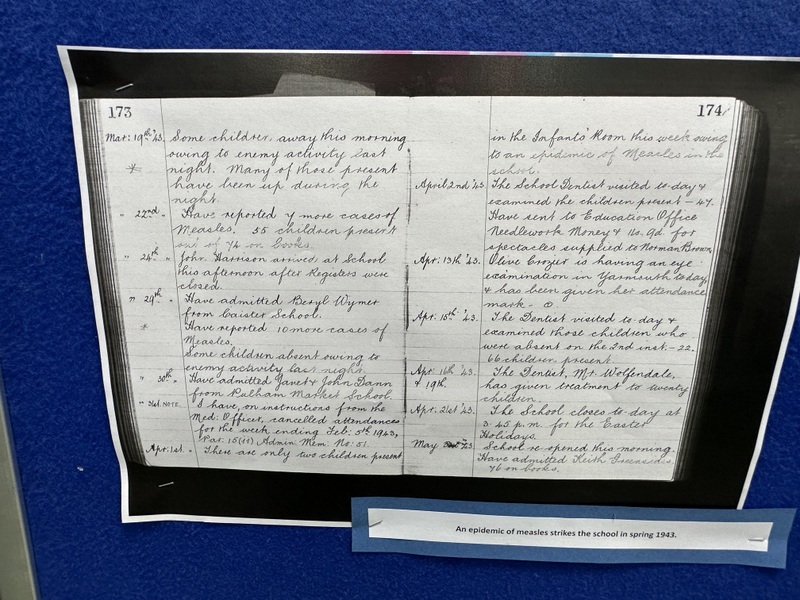 173
Mar: 19th '43. Some children, away this morning
owing to enemy activity last
* night. Many of those present
have been up during the
night.
" 22nd " Have reported 4 more cases of
Measles. 55 children present
out of 74 on books.
" 24th " John Harrison arrived at School
this afternoon after Registers were
closed.
" 29th " Have admitted Beryl Wymer
from Caister School.
* Have reported 10 more cases of
Measles.
Some children absent owing to
enemy activity last night.
" 30th " Have admitted Janet & John Dann
from Pulham Market School.
" 31st. NOTE. I have, on instructions from the
Med: Officer, cancelled attendances
for the week ending Feb: 5th 1943,
Par. 15(11) Admin Mem: No: 51.
Apr: 1st. " There are only two children present
174
in the Infants' Room this week owing
to an epidemic of Measles in the
school.
April 2nd '43. The School Dentist visited to-day &
examined the children present - 47.
Have sent to Education Office
Needlework Money & 11s. 9d. for
spectacles supplied to Norman Brown,
Apr: 13th '43. Olive Crozier is having an eye
examination in Yarmouth to-day,
& has been given her attendance
mark -
Apr: 15th '43. The Dentist visited to-day &
examined those children who
were absent on the 2nd inst. - 22.
66 children present.
Apr: 16th '43. The Dentist, Mr. Wolfendale,
& 19th. has given treatment to twenty
children.
Apr: 21st '43. The School closes to-day at
3-45 p.m. for the Easter
Holidays.
May '43. School re-opened this morning.
Have admitted Keith
76 on books.
An epidemic of measles strikes the school in spring 1943.